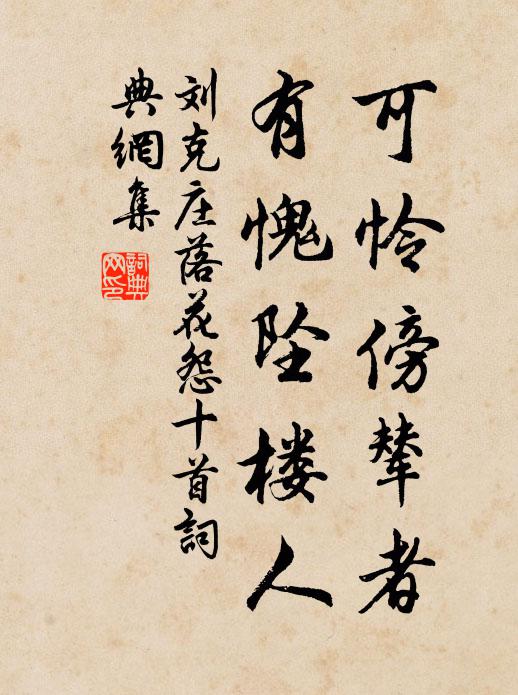 可怜傍辇者
有愧坠楼人
刘克庄落花怨十首詞
典網集
詞典网印